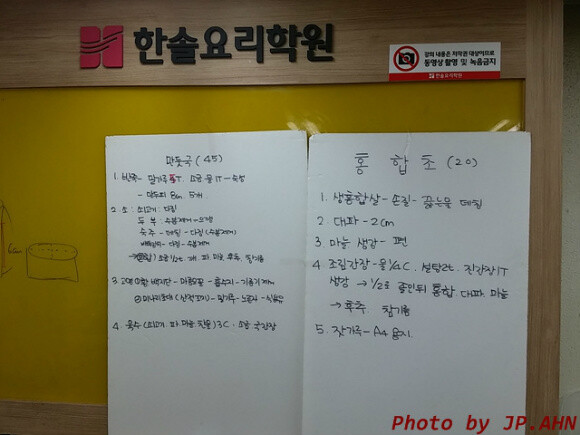 한솔요리학원
강의 내용은 저작권 대상이므로
동영상 촬영 및 녹음금지
한솔요리학원
만둣국 (45)
1. 반죽 - 밀가루 5T. 소금. 물 1T - 숙성
- 만두피 8cm. 5개.
2. 소 : 쇠고기 : 다짐
두부 : 수분제거 - 으깸
숙주 - 데침 - 다짐 (수분제거)
배추김치 - 다짐 - 수분제거
소금 1/2t. 깨. 파. 마늘. 후추. 참기름
3. 고명 ① 황백지단 - 마름모꼴 - 흡수지 - 기름기 제거
② 미나리초대 (산적꼬지) - 밀가루 - 노른자 - 식용유
4. 육수 (쇠고기. 파. 마늘) 3C. 소금 국간장
홍합초 (20)
1. 생홍합살 - 손질 - 끓는물 데침
2. 대파 - 2cm
3. 마늘 생강 - 편
4. 조림간장 - 물 1/2C. 설탕 2t. 진간장 1T
생강 → 1/2로 졸인뒤 홍합. 대파. 마늘
→ 후추 참기름
5. 잣가루 - A4용지
6cm
Photo by JP.AHN